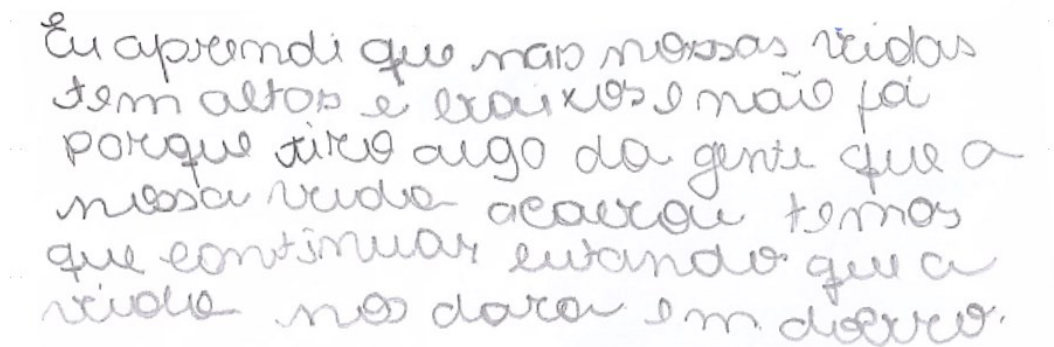 Eu aprendi que nas nossas vidas
tem altos e baixos e não fá
porque tiro algo da gente que a
nossa vida acabou temos
que continuar lutando que a
vida nos dara em dobro.